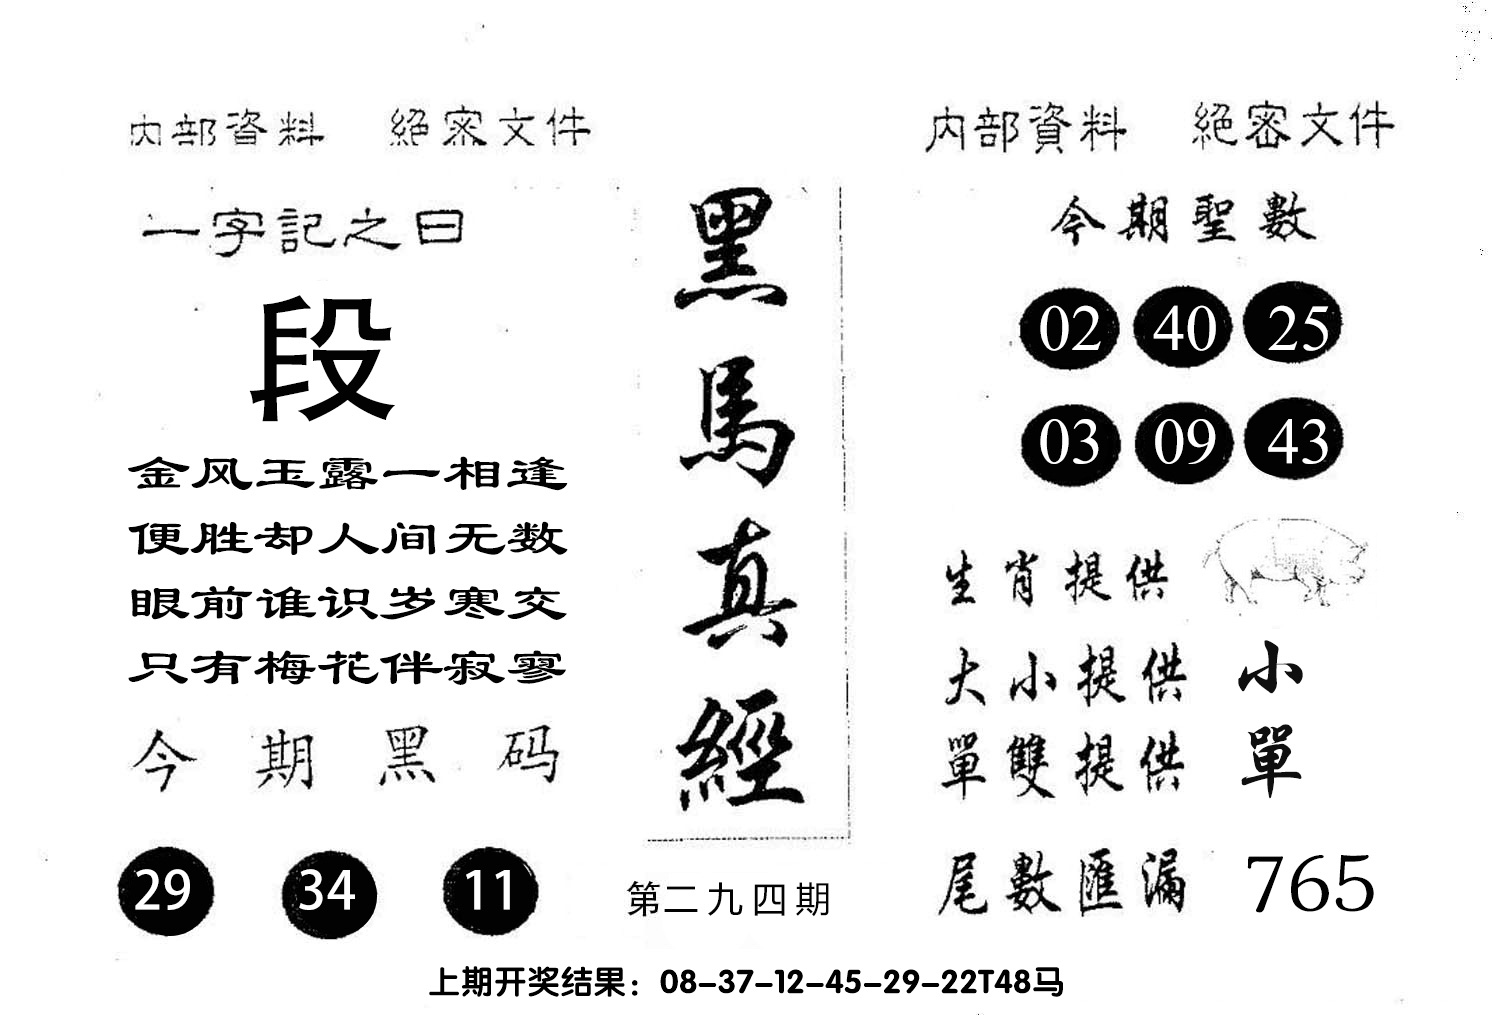 内部資料 絕密文件
一字記之曰
段
金风玉露一相逢
便胜却人间无数
眼前谁识岁寒交
只有梅花伴寂寥
今期黑码
29 34 11
黑馬真經
第二九四期
内部資料 絕密文件
今期聖數
02 40 25
03 09 43
生肖提供
大小提供 小
單雙提供 單
尾數匯漏 765
上期开奖结果：08-37-12-45-29-22T48马